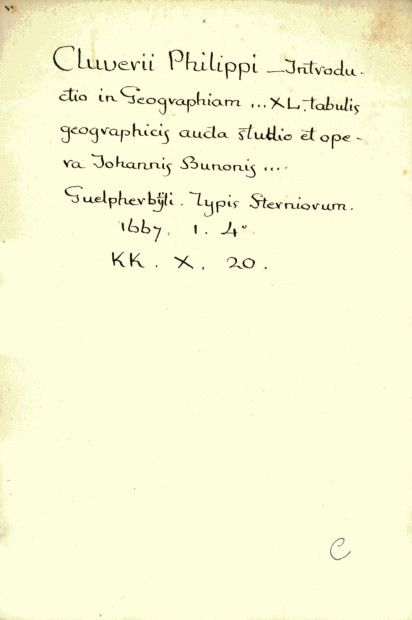 Cluverii Philippi – Introdu-
ctio in Geographiam ... XL. tabulis
geographicis aucta studio et ope-
ra Johannis Bunonis ....
Guelpherbÿti. Typis Sterniorum.
1667. 1. 4°.
KK. X. 20.
C